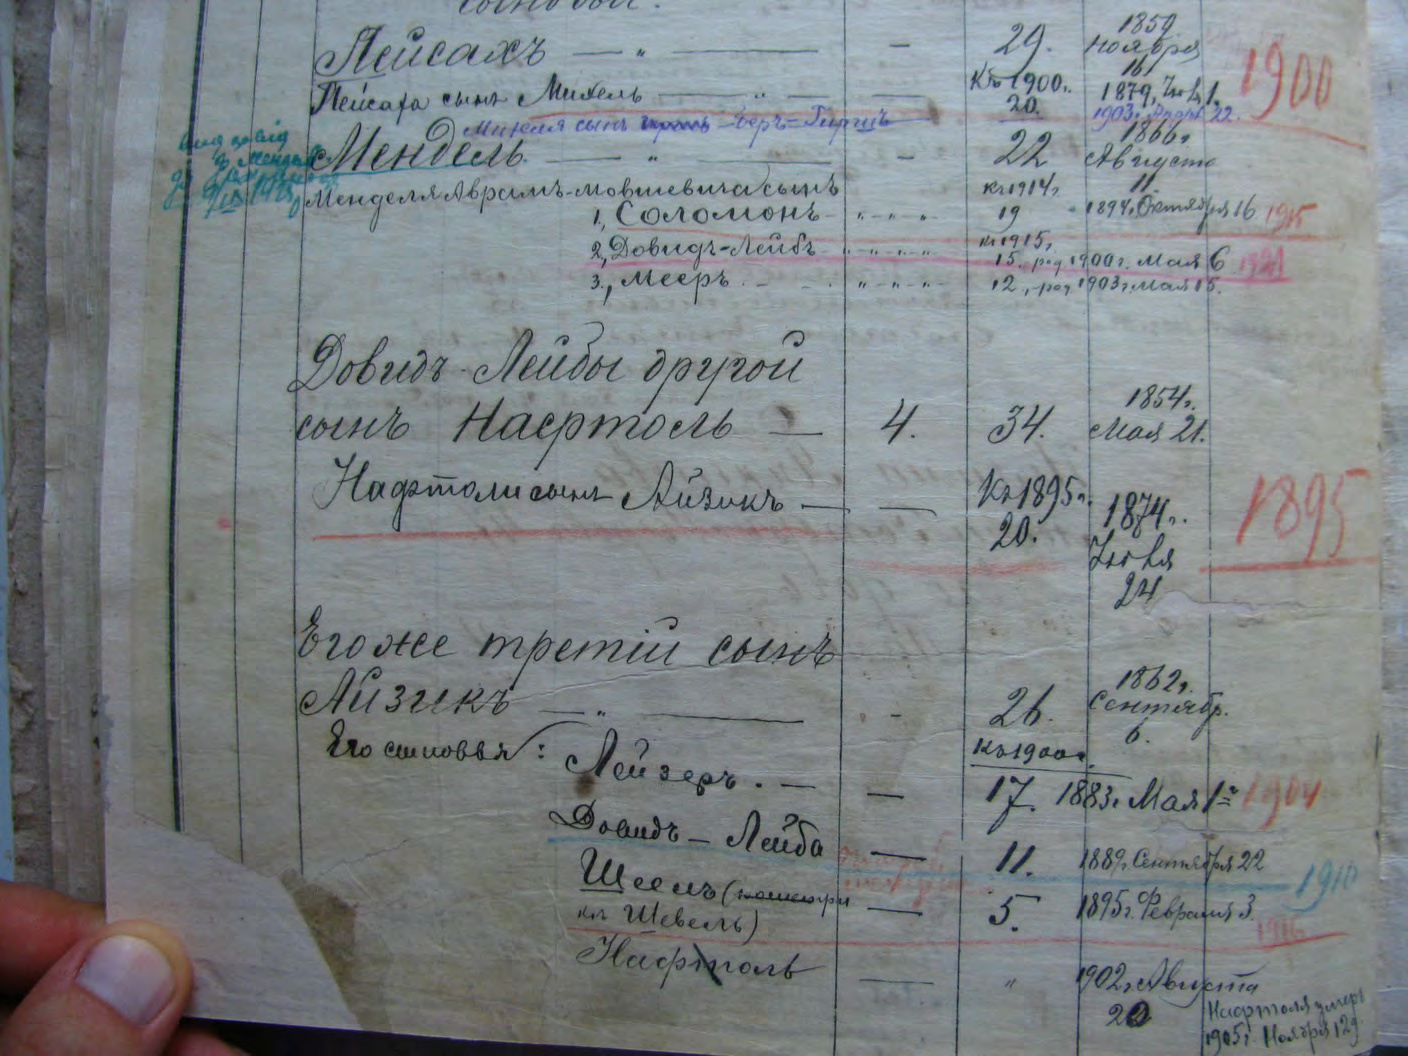 сыновья:
Пейсахъ — „ — — 29. 1859 ноября 16
1900
Пейсаха сынъ Михель — „ — — Къ 1900г. 20. 1879, Iюля 1.
Михеля сынъ Беръ-Гиршъ 1903 22.
Мендель — „ — — 22 1866г. Августа 11
Менделя Аврамъ-Мовшевича сынъ къ 1914г.
1, Соломонъ - „ - „ - „ 19 1894г. Октября 16 1915
къ 1915г.
2, Довидъ-Лейбъ „ „ „ „ 15. род 1900г. Мая 6 1921
3, Мееръ. - - „ - „ - „ 12, род 1903г. Мая 15.
Довидъ-Лейбы другой
сынъ Нафтоль — 4. 34. 1854г. Мая 21.
Нафтоли сынъ Айзикъ — — Къ 1895г. 20. 1874г. Iюля 24
1895
Его же третiй сынъ
Айзикъ — „ — - 26. 1862г. Сентябр. 6.
Его сыновья: Лейзеръ. — — Къ 1900г. 17. 1883г. Мая 1го 1904
Довидъ — Лейба — 11. 1889г. Сентября 22
1910
Шеель ( — 5. 1895г. Февраля 3.
Шевель) 1916
Нафтоль — „ 1902г. Августа
20 Нафтоля умеръ
1905г. Ноября 29